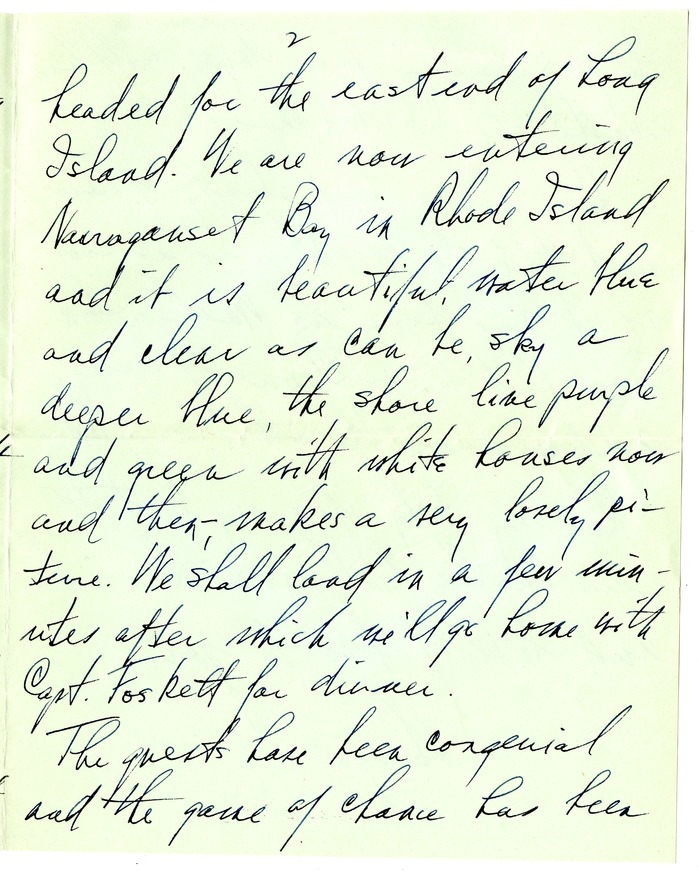 2
headed for the east end of Long
Island. We are now entering
Narraganset Bay in Rhode Island
and it is beautiful, water blue
and clear as can be, sky a
deeper blue, the shore line purple
and green with white houses now
and then-, makes a very lovely pi-
ture. We shall land in a few min-
utes after which we'll go home with
Capt. Foskett for dinner.
The guests have been congenial
and the game of chance has been